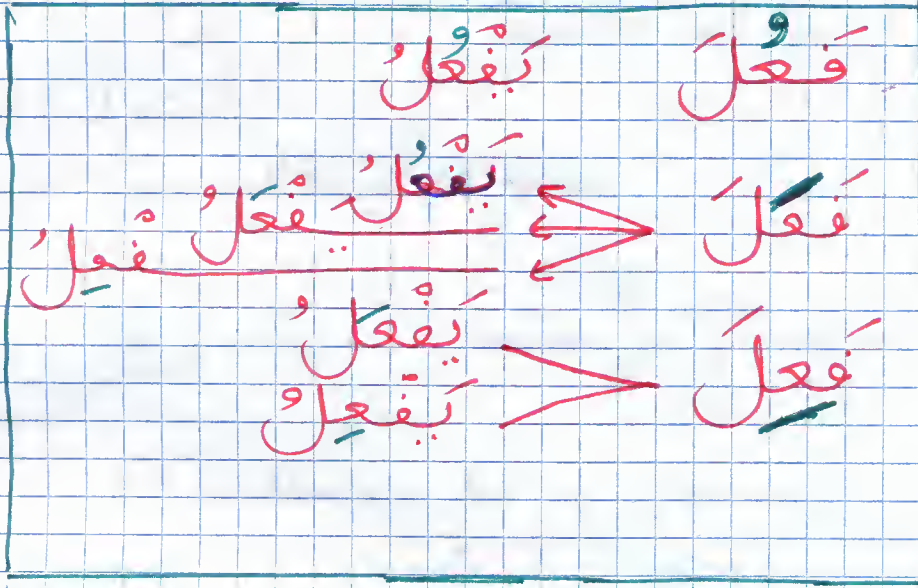 فَعُلَ يَفْعُلُ
فَعَلَ يَفْعُلُ
يَفْعَلُ
يَفْعِلُ
فَعِلَ يَفْعَلُ
يَفْعِلُ